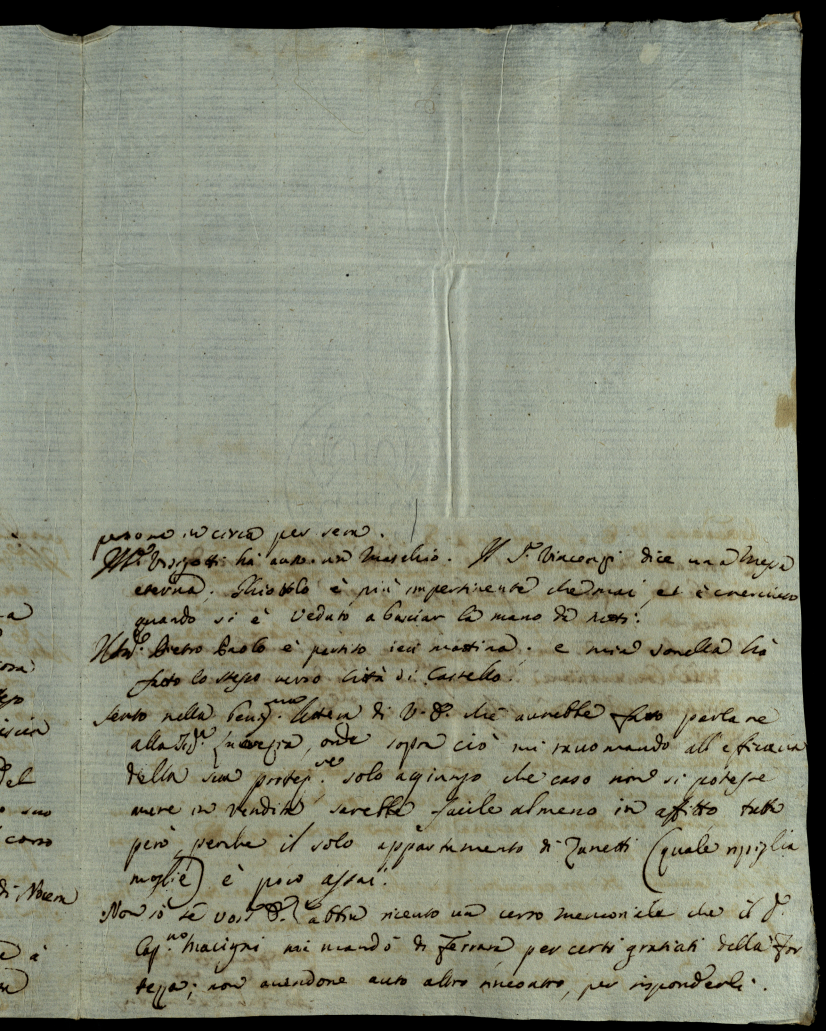 persone in circa per sera.
Vizzotti hà auto un Maschio. Il S.r Vincenzi dice una Messa
eterna; è più impertinente che mai, et è
quando si è veduto a basciar la mano da tutti.
Pietro Paolo è partito ieri mattina; e mia sorella hà
fatto lo stesso verso Città di Castello.
Sento nella lettera di V. S. che aurebbe fatto parlare
alla Sig.ra, onde sopra ciò mi raccomando all'efficacia
della sua solo agiungo che caso non si potesse
auere in vendita sarebbe facile almeno in affitto tutta
però, perche il solo appartamento di Zanetti (quale ripiglia
moglie) è poco assai.
Non sò sè abbia riceuto un certo memoriale che il S.
Macigni mi mandò di Ferrara per certi gratiati della For
tezza; non auendone auto altro rincontro, per risponderli.
la
cosa
del
suo
corso
di Nocera
à